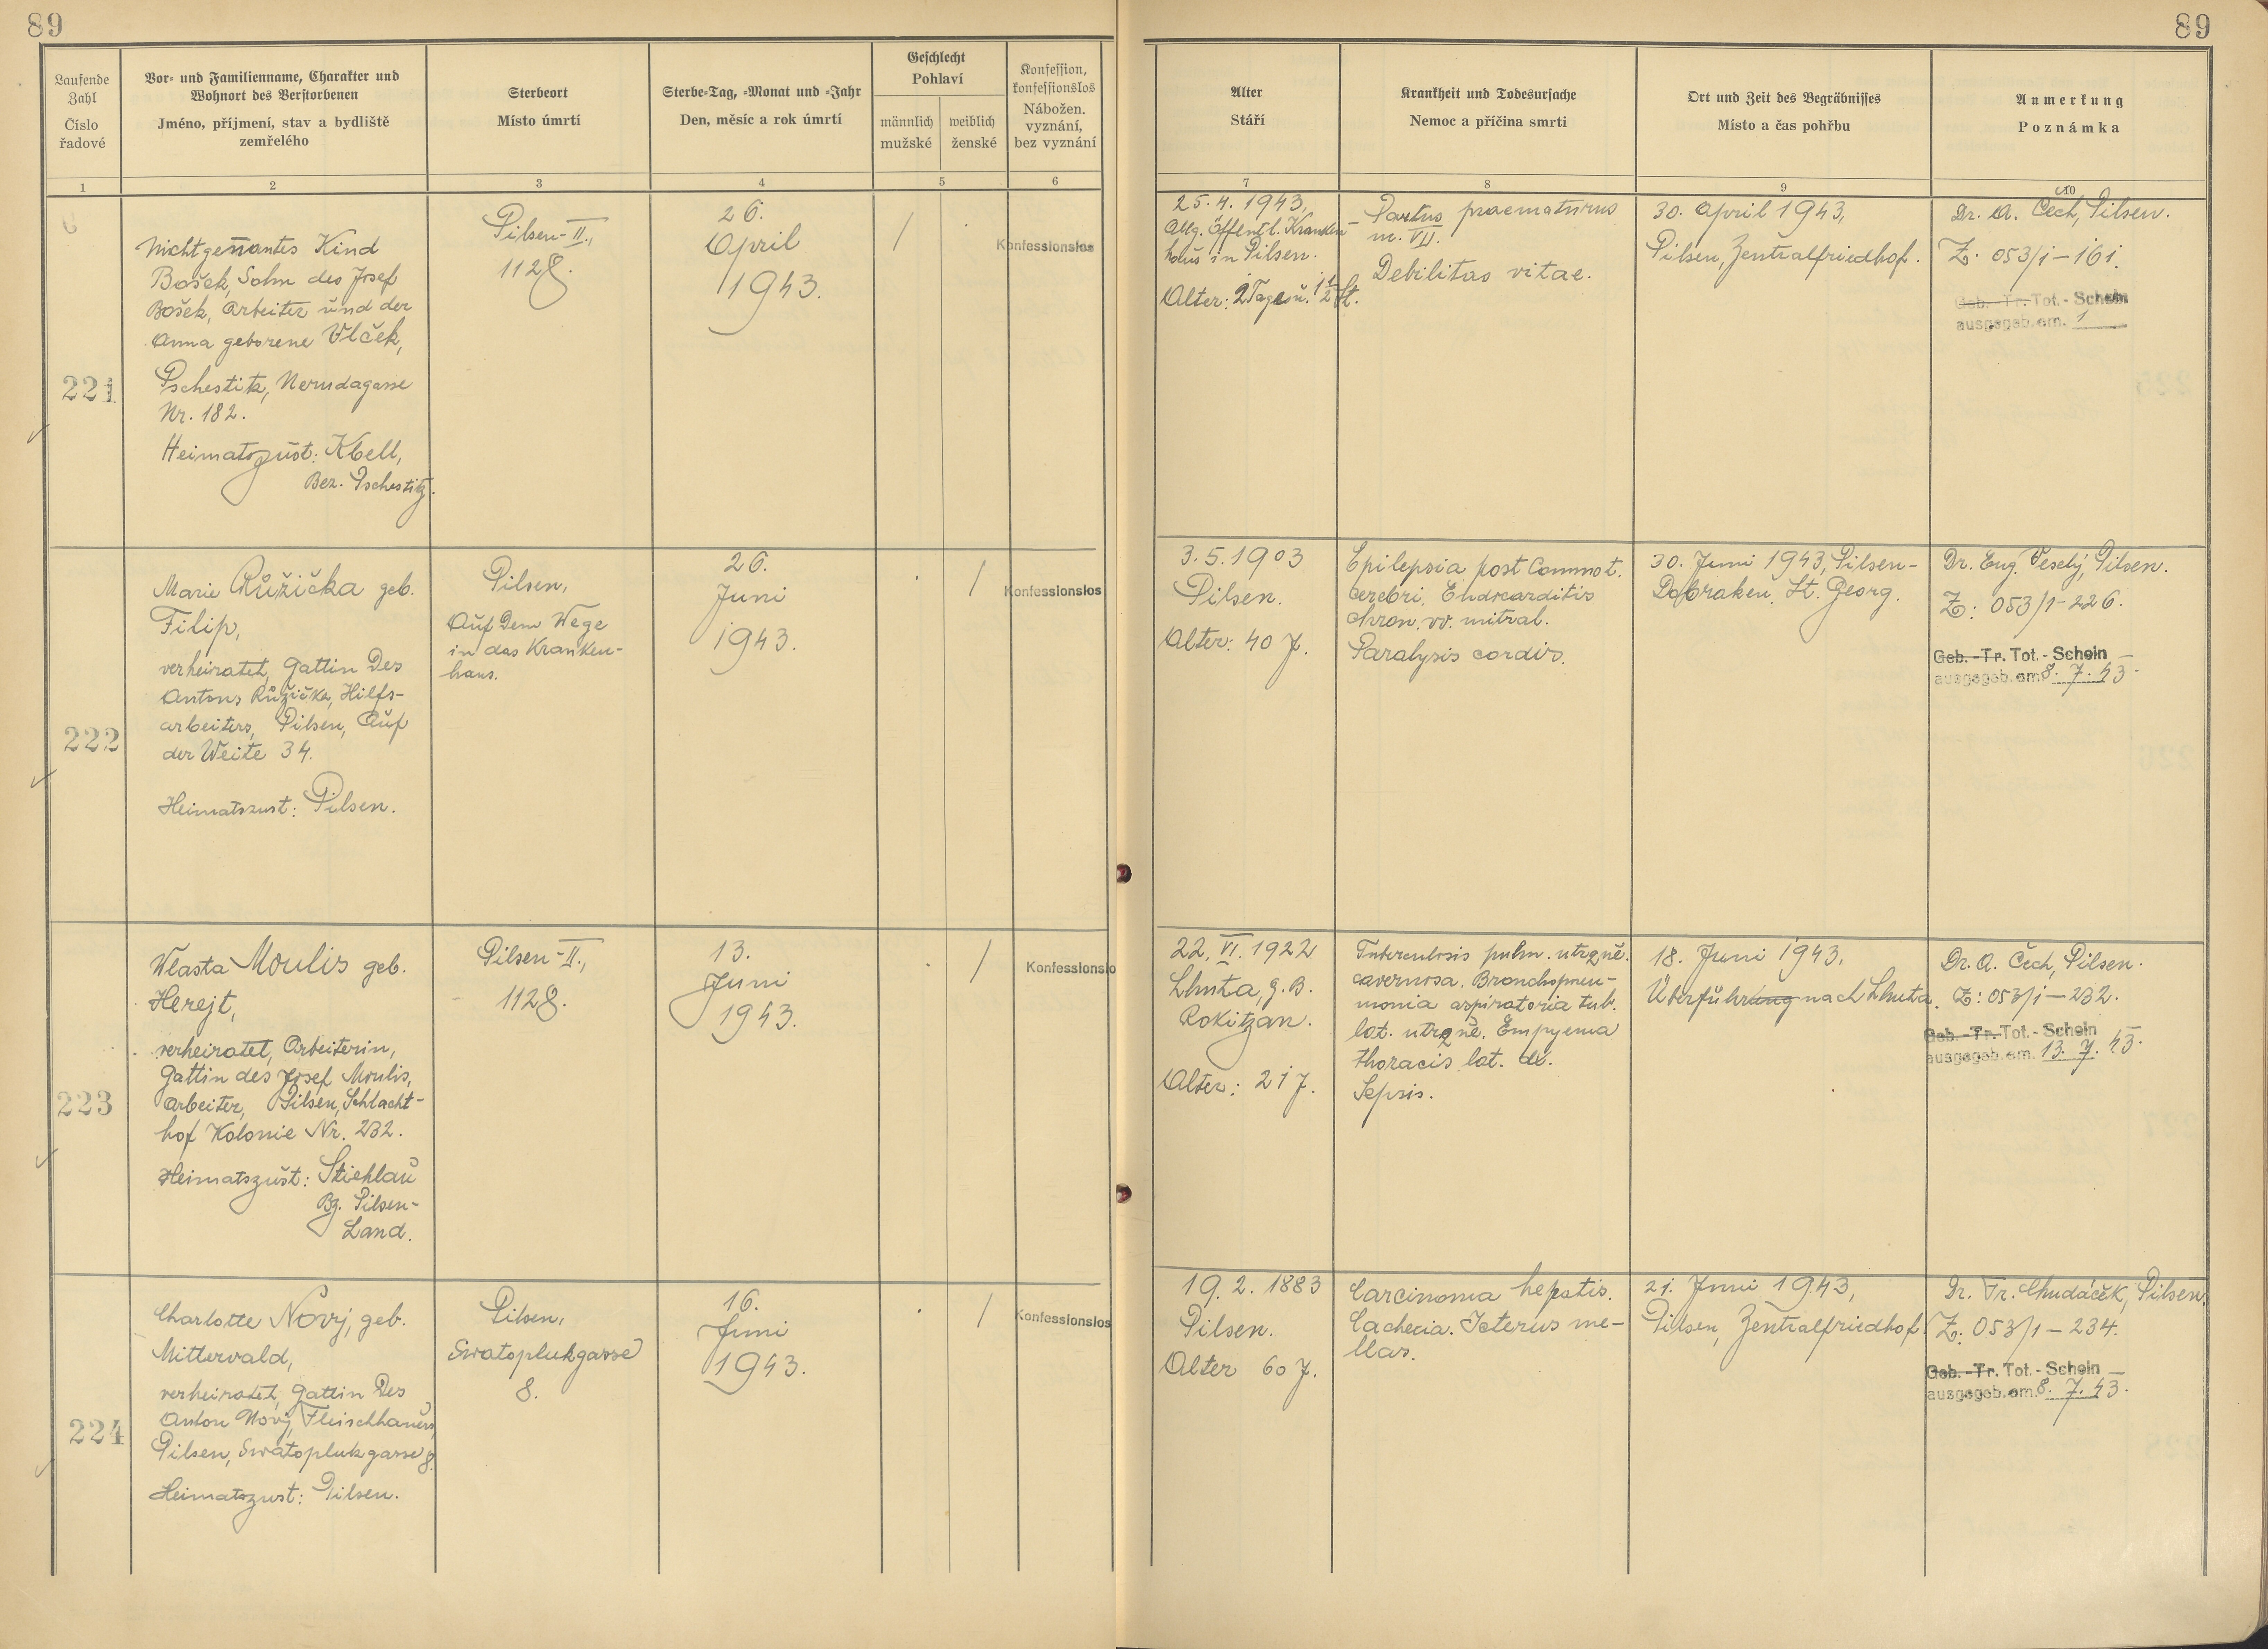 89
89
Laufende Zahl
Číslo řadové
Vor- und Familienname, Charakter und
Wohnort des Verstorbenen
Jméno, příjmení, stav a bydliště
zemřelého
Sterbeort
Místo úmrtí
Sterbe-Tag, -Monat und -Jahr
Den, měsíc a rok úmrtí
Geschlecht
Pohlaví
männlich
mužské
weiblich
ženské
Konfession,
konfessionslos
Nábožen.
vyznání,
bez vyznání
Alter
Stáří
Krankheit und Todesursache
Nemoc a příčina smrti
Ort und Zeit des Begräbnisses
Místo a čas pohřbu
Anmerkung
Poznámka
1 2 3 4 5 6 7 8 9 10
221
Nichtgenantes Kind
Bošek, Sohn des Josef
Bošek, Arbeiter und der
Anna geborene Vlček,
Pschestitz, Nerudagasse
Nr. 182.
Heimatszust: Kbell,
Bez. Pschestitz.
Pilsen-II.,
1128.
26.
April
1943.
/
Konfessionslos
25.4.1943,
Allg. öffentl. Kranken-
haus in Pilsen.
Alter: 2 Tage u. 1/2 St.
Partus praematurus
m. VII.
Debilitas vitae.
30. April 1943,
Pilsen, Zentralfriedhof.
Dr. A. Čech, Pilsen.
Z: 053/1-161.
Geb.-Tr. Tot.-Schein
ausgegeb. am. 1
222
Marie Růžička geb.
Filip,
verheiratet, Gattin des
Antons Růžička, Hilfs-
arbeiters, Pilsen, Auf
der Weite 34.
Heimatszust: Pilsen.
Pilsen,
Auf dem Wege
in das Kranken-
haus.
26.
Juni
1943.
/
Konfessionslos
3.5.1903
Pilsen.
Alter: 40 J.
Epilepsia post Commot.
cerebri. Endocarditis
chron. vv. mitral.
Paralysis cordis.
30. Juni 1943, Pilsen-
Dobraken, St. Georg.
Dr. Eug. Veselý, Pilsen.
Z: 053/1-226.
Geb.-Tr. Tot.-Schein
ausgegeb. am 8. 7. 43.
223
Wlasta Moulis geb.
Herejt,
verheiratet, Arbeiterin,
Gattin des Josef Moulis,
Arbeiter, Pilsen, Schlacht-
hof Kolonie Nr. 232.
Heimatszust: Stiehlau
Bz. Pilsen-
Land.
Pilsen-II.,
1128.
13.
Juni
1943.
/
Konfessionslo
22. VI. 1922
Lhuta, g.B.
Rokitzan.
Alter: 21 J.
Tuberculosis pulm. utrqne.
cavernosa. Bronchopneu-
monia aspiratoria tub.
lat. utrqne. Empyema
thoracis lat. d.
Sepsis.
18. Juni 1943,
Überführung nach Lhuta.
Dr. A. Čech, Pilsen.
Z: 053/1-232.
Geb.-Tr. Tot.-Schein
ausgegeb. am. 13. 7. 43.
224
Charlotte Nový, geb.
Mitterwald,
verheiratet, Gattin des
Anton Nový, Fleischhauers,
Pilsen, Swatoplukgasse 8.
Heimatszust: Pilsen.
Pilsen,
Swatoplukgasse
8.
16.
Juni
1943.
/
Konfessionslos
19.2.1883
Pilsen.
Alter 60 J.
Carcinoma hepatis.
Cachexia. Icterus me-
llas.
21. Juni 1943,
Pilsen, Zentralfriedhof
Dr. Tr. Chudáček, Pilsen.
Z: 053/1-234.
Geb.-Tr. Tot.-Schein
ausgegeb. am 8. 7. 43.